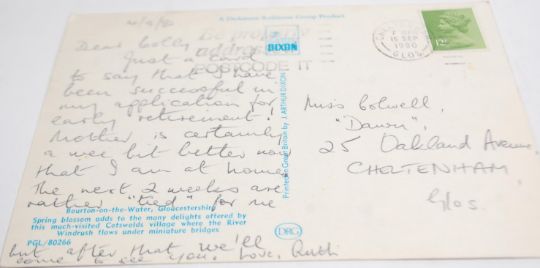 A Dickinson Robinson Group Product
Dear Colly
Just a card
to say that I have
been successful in
my application for
early retirement!
Mother is certainly
a wee bit better now
that I am at home.
The next 2 weeks are
rather "tied" for me
but after that we'll
come to see you. Love, Ruth
Bourton-on-the-Water, Gloucestershire
Spring blossom adds to the many delights offered by
this much-visited Cotswolds village where the River
Windrush flows under miniature bridges
PGL/80266
DIXON
Printed in Great Britain by J. ARTHUR DIXON
DRG
POSTCODE IT
15 SEP
1980
GLOS
12
Miss Colwell,
"Dawn",
25 Oakland Avenue,
CHELTENHAM,
Glos.